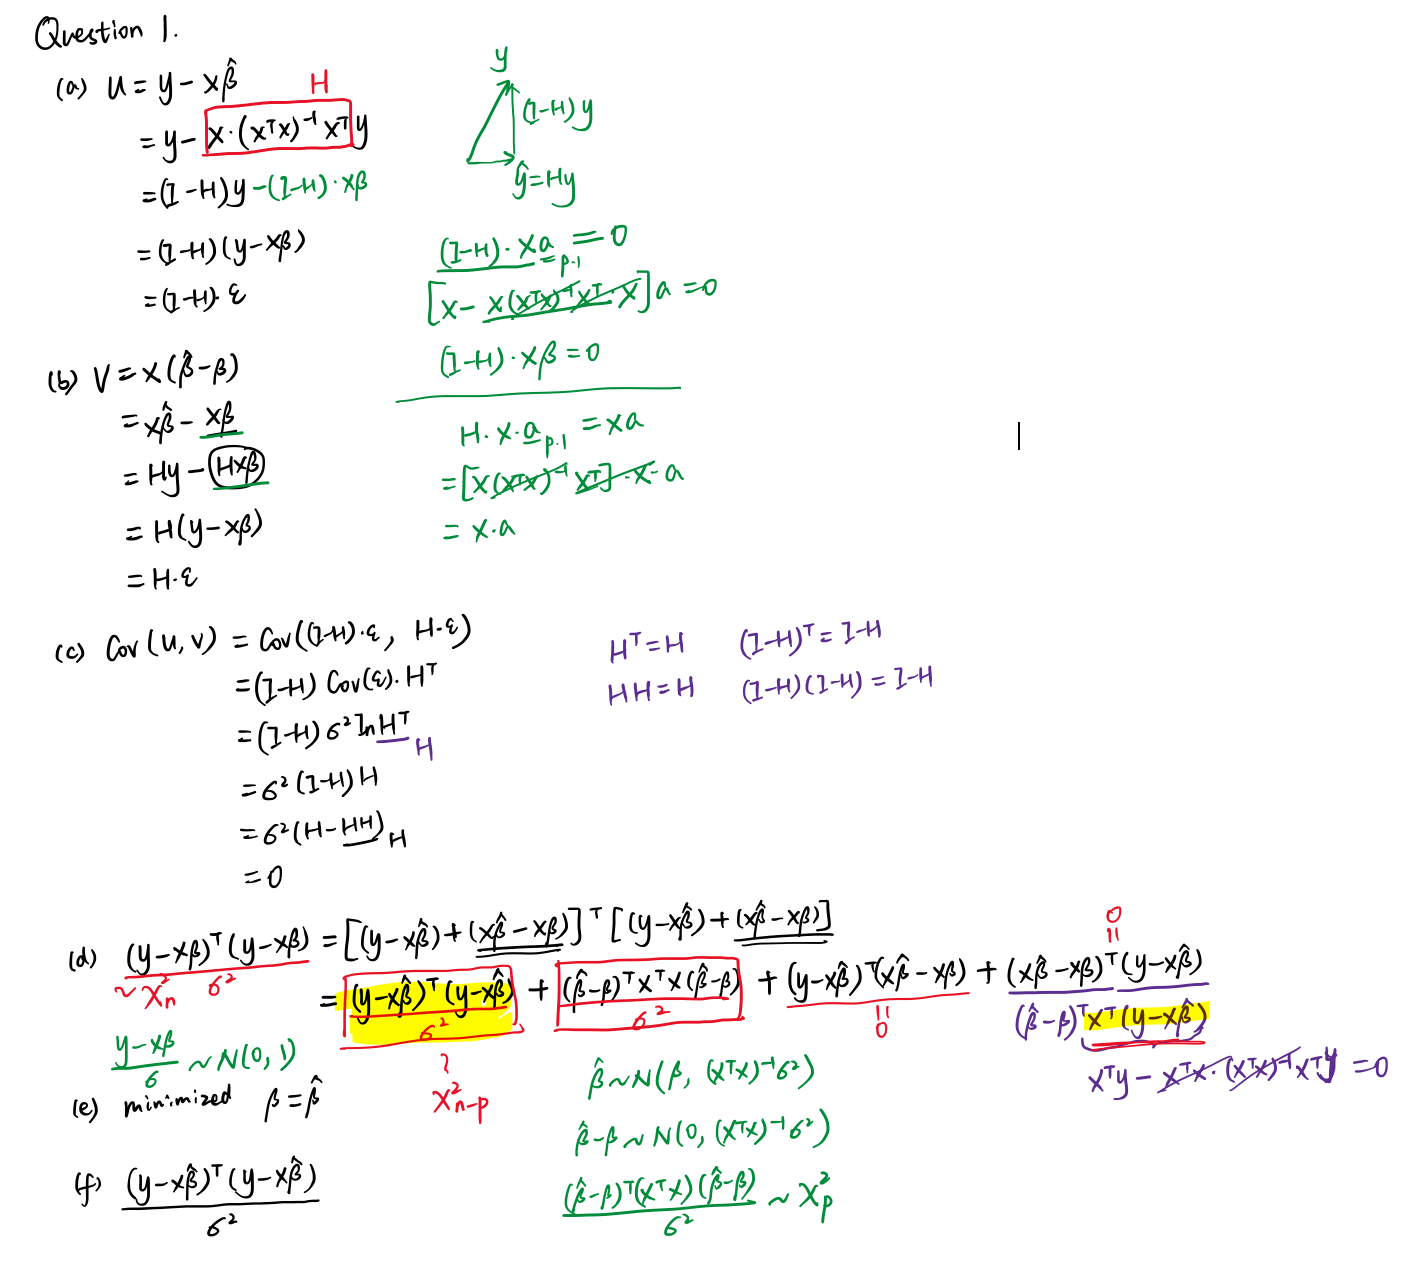 Question 1.
(a) u = y - xβ̂
H
= y - x·(xᵀx)⁻¹xᵀ y
= (I-H)y -(I-H)·xβ
= (I-H)(y-xβ)
= (I-H)·ε
y
(I-H)y
ŷ=Hy
(I-H)·xa p·1 = 0
[x- x(xᵀx)⁻¹xᵀ·x]a = 0
(I-H)·xβ = 0
H·x·a p·1 = xa
=[x(xᵀx)⁻¹xᵀ]·x·a
= x·a
(b) V = x(β̂-β)
= xβ̂ - xβ
= Hy - Hxβ
= H(y-xβ)
= H·ε
(c) Cov(u,v) = Cov((I-H)·ε, H·ε)
= (I-H) Cov(ε)·Hᵀ
= (I-H) σ² In Hᵀ H
= σ²(I-H)H
= σ²(H-HH) H
= 0
Hᵀ=H (I-H)ᵀ= I-H
HH=H (I-H)(I-H) = I-H
(d) (y-xβ)ᵀ(y-xβ) = [(y-xβ̂)+(xβ̂-xβ)]ᵀ[(y-xβ̂)+(xβ̂-xβ)]
~χ²n σ²
= (y-xβ̂)ᵀ(y-xβ̂) + (β̂-β)ᵀxᵀx(β̂-β) + (y-xβ̂)ᵀ(xβ̂-xβ) + (xβ̂-xβ)ᵀ(y-xβ̂)
σ² σ² = 0 = 0
~ χ²n-p
(β̂-β)ᵀxᵀ(y-xβ̂)
xᵀy - xᵀx·(xᵀx)⁻¹xᵀy = 0
y-xβ / σ ~ N(0,1)
β̂~N(β, (xᵀx)⁻¹σ²)
β̂-β~N(0, (xᵀx)⁻¹σ²)
(β̂-β)ᵀ(xᵀx)(β̂-β) / σ² ~ χ²p
(e) minimized β=β̂
(f) (y-xβ̂)ᵀ(y-xβ̂)
σ²